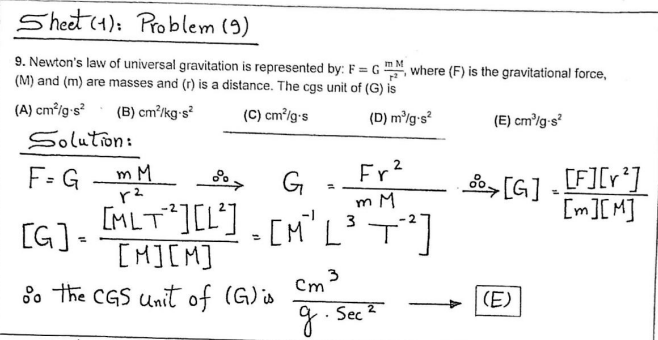 Sheet (1): Problem (9)
9. Newton's law of universal gravitation is represented by: F = G m M / r², where (F) is the gravitational force,
(M) and (m) are masses and (r) is a distance. The cgs unit of (G) is
(A) cm²/g·s² (B) cm²/kg·s² (C) cm²/g·s (D) m³/g·s² (E) cm³/g·s²
Solution:
F = G m M / r² ∴→ G = F r² / m M ∴→ [G] = [F][r²] / [m][M]
[G] = [MLT⁻²][L²] / [M][M] = [M⁻¹ L³ T⁻²]
∴ the CGS unit of (G) is cm³ / g . Sec² → (E)